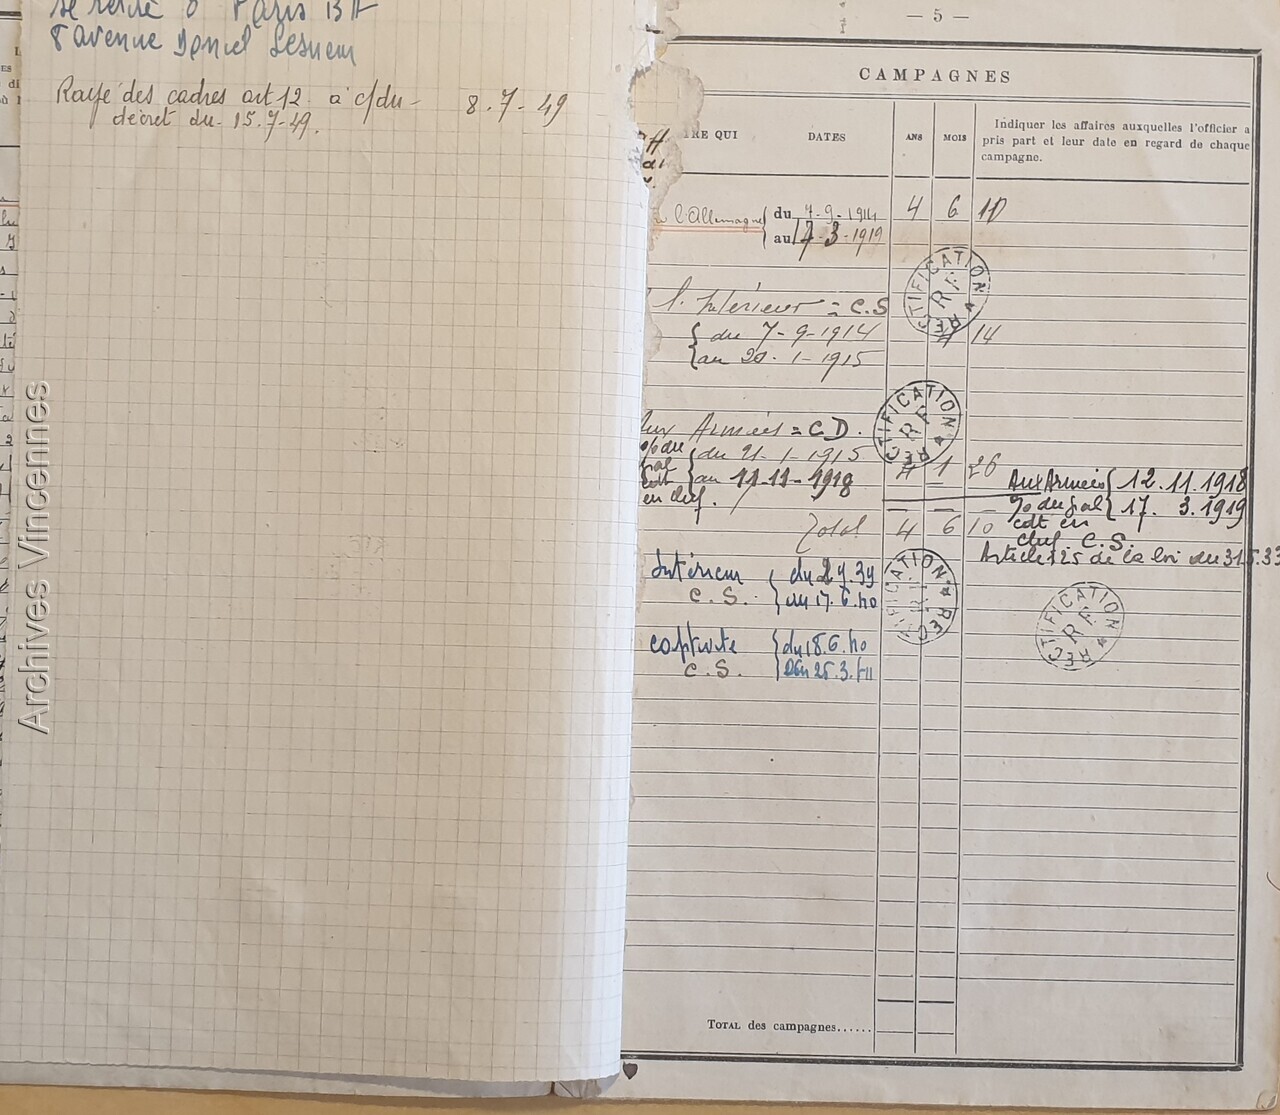 se retire à Paris 13
8 avenue Daniel Lesueur
Rayé des cadres art 12 à c/du - 8.7-49
décret du 15.7-49.
Archives Vincennes
— 5 —
CAMPAGNES
RE QUI DATES ANS MOIS Indiquer les affaires auxquelles l'officier a
pris part et leur date en regard de chaque
campagne.
l'Allemagne du 7-9-1914 4 6 10
au 17-3-1919
l'Intérieur = C.S
du 7-9-1914 14
au 20-1-1915
RECTIFICATION RF
Aux Armées = C.D.
du 21-1-1915 26
au 11-11-1918
en chef.
Aux Armées 12.11.1918
% du gal 17. 3.1919
cdt en
chef C.S.
Total 4 6 10
Article 125 de la loi du 31.5.33
RECTIFICATION RF
Intérieur du 2.9.39
C.S. au 17.6.40
RECTIFICATION
RECTIFICATION RF
captivité du 18.6.40
C.S. au 25.3.41
TOTAL des campagnes......